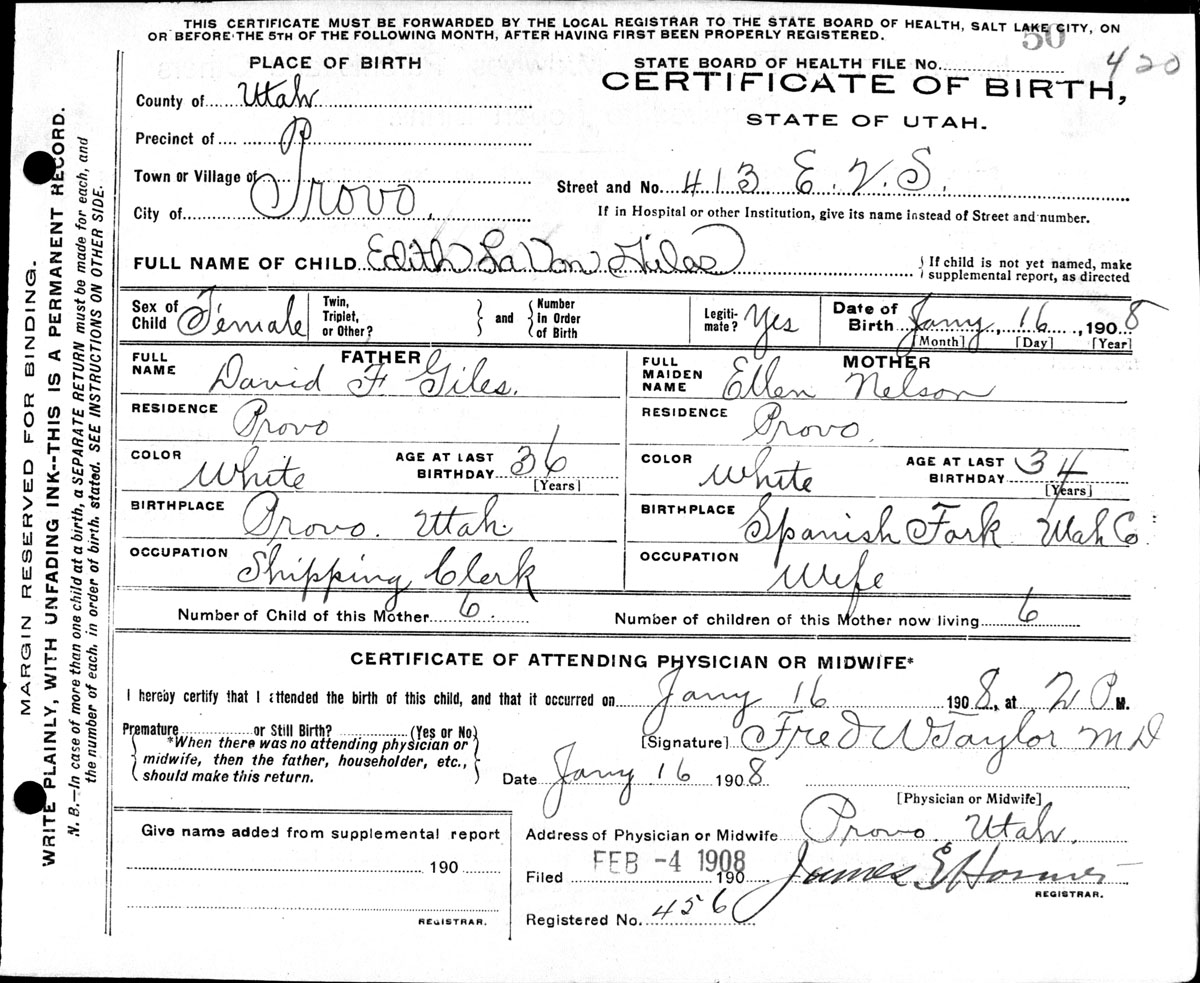 THIS CERTIFICATE MUST BE FORWARDED BY THE LOCAL REGISTRAR TO THE STATE BOARD OF HEALTH, SALT LAKE CITY, ON
OR BEFORE THE 5TH OF THE FOLLOWING MONTH, AFTER HAVING FIRST BEEN PROPERLY REGISTERED.
50
420
PLACE OF BIRTH
STATE BOARD OF HEALTH FILE No.
CERTIFICATE OF BIRTH,
STATE OF UTAH.
County of Utah
Precinct of P
Town or Village of
City of Provo.
Street and No. 413 E. V. S.
If in Hospital or other Institution, give its name instead of Street and number.
FULL NAME OF CHILD Edith LaVon Giles
If child is not yet named, make
supplemental report, as directed
Sex of Child Female
Twin, Triplet, or Other?
and
Number in Order of Birth
Legiti-mate? Yes
Date of Birth Jany, 16, 1908
[Month] [Day] [Year]
FATHER
FULL NAME David F Giles.
RESIDENCE Provo
COLOR White
AGE AT LAST BIRTHDAY 36
[Years]
BIRTHPLACE Provo. Utah.
OCCUPATION Shipping Clerk
MOTHER
FULL MAIDEN NAME Ellen Nelson
RESIDENCE Provo.
COLOR White
AGE AT LAST BIRTHDAY 34
[Years]
BIRTHPLACE Spanish Fork Utah Co
OCCUPATION Wife
Number of Child of this Mother 6.
Number of children of this Mother now living 6
CERTIFICATE OF ATTENDING PHYSICIAN OR MIDWIFE*
I hereby certify that I attended the birth of this child, and that it occurred on Jany 16 1908, at 2 P M.
Premature or Still Birth? (Yes or No)
*When there was no attending physician or
midwife, then the father, householder, etc.,
should make this return.
[Signature] Fred W Taylor M D
Date Jany 16 1908
[Physician or Midwife]
Give name added from supplemental report
190
REGISTRAR.
Address of Physician or Midwife Provo, Utah.
Filed FEB -4 1908 190
James E
REGISTRAR.
Registered No. 456
MARGIN RESERVED FOR BINDING.
WRITE PLAINLY, WITH UNFADING INK--THIS IS A PERMANENT RECORD.
N. B.—In case of more than one child at a birth, a SEPARATE RETURN must be made for each, and
the number of each, in order of birth, stated. SEE INSTRUCTIONS ON OTHER SIDE.